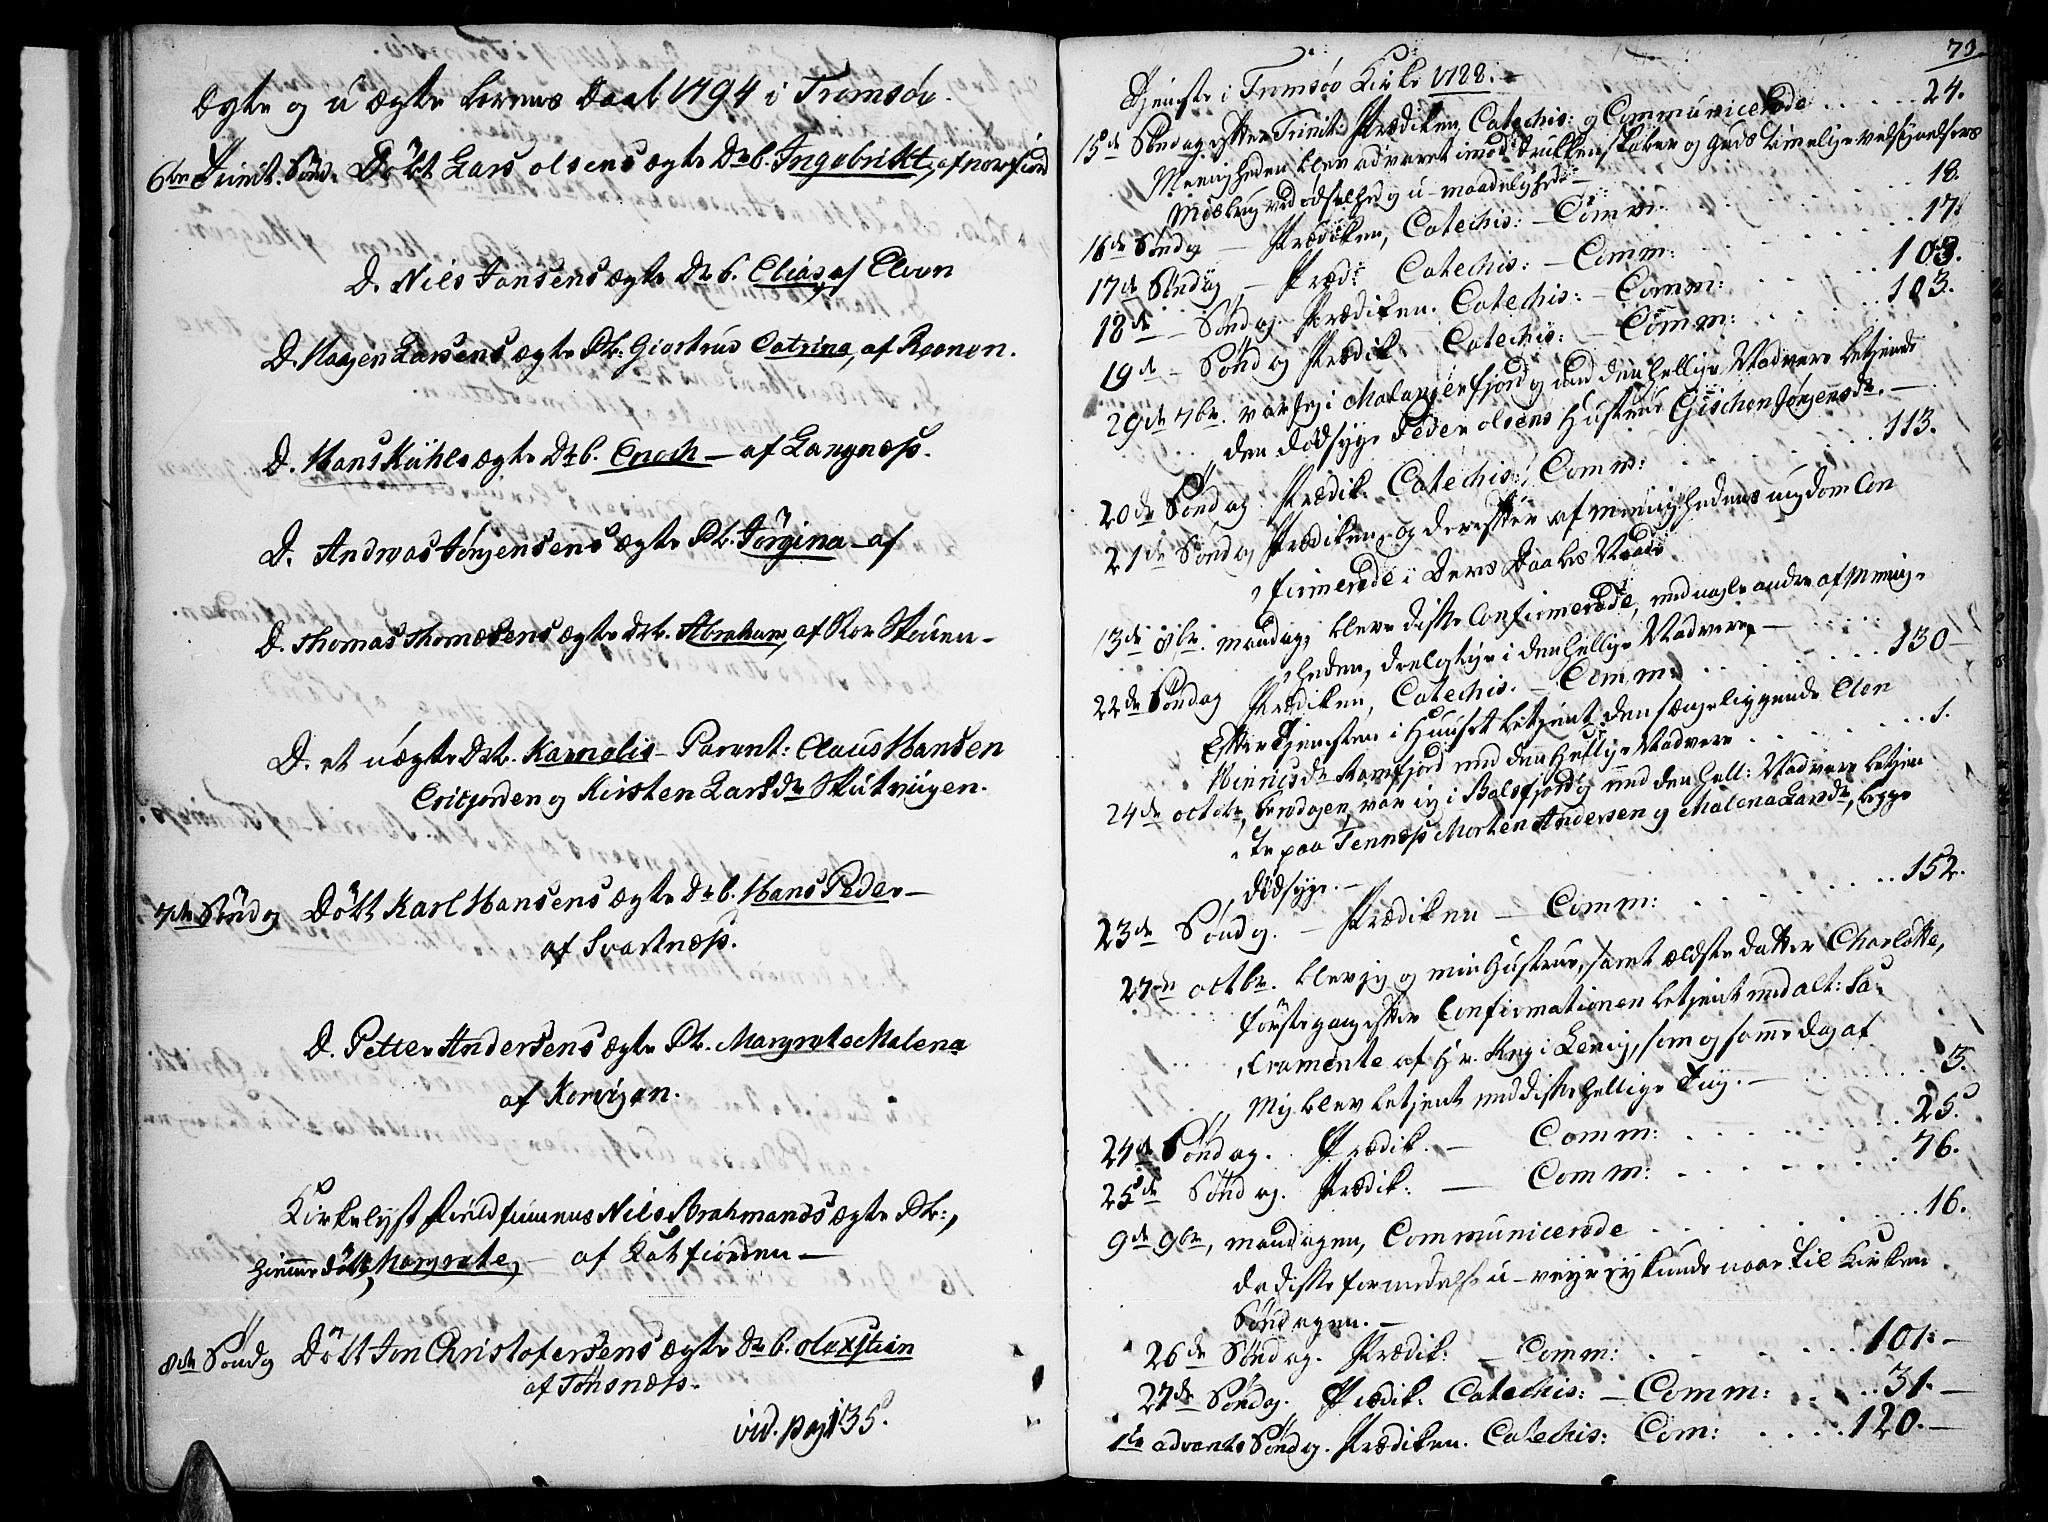 Ægte og u ægte börns Daab 1794 i Tromsöe.
6te Trinit. Sönd. Döbt Lars olsens ægte Dr.b. Ingebrikt, af norfiord
D. Nils Jansens ægte Dr.b. Elias, af Elven
D. Haagen Larsens ægte Pb. Giertrud Catrina, af Roenen.
D. Hans Kühls ægte Dr.b. Enoch – af Langnæss.
D. Andreas Jörgensens ægte Pb. Jörgina – af
D. Thomas Thomesens ægte Drb. Abraham, af Skouen –
D. et uægte Drb. Karnelis – Parent: Claus Hansen
og Kirsten Larsdr Skutviigen.
7de Söndag Döbt Karl Hansens ægte Dr.b. Hans Peder –
af Svartnæss.
D. Petter Andersens ægte Pb. Margrete Malena
af Korvigen.
Kirkelyst Nils Abrahmands ægte Pb:,
hiemmedöbt, Margrete, – af Katfiorden –
8de Söndg Döbt Jon Christofersens ægte Dr.b. olaxstian
af Tönsnæss.
vid. pag 135.
73
Tjeneste i Tromsöe Kirke 1788. –
15de Söndag efter Trinit: Prædiken, Catechis: og Communicerede . . . . . 24.
Meenigheden blev advaret imod Drukkenskaber og Guds timelige velsignelsers
Misbrug ved ødselhed og u-maadelighed –
16de Söndag – Prædiken, Catechis: – Comm: . . . . 18.
17de Söndag – Præd: Catechis: – Comm: . . . . 17.
18de – Söndag. Prædiken. Catechis: – Comm: . . . . 103.
19de – Söndag Prædik: Catechis: – Comm: . . . . 103.
29de 7br. var jeg i Malangerfjord og med den hellige Nadvere betjende
den dödsyge Peder olsens Hustrue Gischen Jørgensdr. –
20de Söndag Prædik. Catechis: Comm: . . . . 113.
21de Söndag Prædiken, og derefter af menighedens ungdom Con
firmerede i Deres Daabes Naade
13de 8br. mandag, bleve disse Confirmerede, med nogle andre af Menig-
heden, deelagtige i den hellige Nadvere, –
22de Söndag Prædiken, Catechis. – Comm: . . . . 130 –
Efter Tjenesten i Huuset betjent den sængeliggende Elen
Hinnicsdr. Ramfjord med den hellige Nadvere . . . . . 1.
24de octobr, var jeg i Balsfjord og med den hell: Nadvere betjen
te paa Tennæss Morten Andersen og Malena Larsdr, begge
dödsyge. –
23de Söndg. – Prædiken – Comm: . . . . 152.
27de octbr. blev jeg og min Hustrue, samt ældste datter Charlotte,
förste gang efter Confirmationen betjent med alt: Sa-
cramente af Hr. Krog i Lenvig, som og samme dag af
Mig blev betjent med disse hellige . – . . . . 3.
24de Söndag. Prædik. – Comm: . . . . 25.
25de Söndag. Prædik: – Comm: . . . . 76.
9de 9br, mandagen, Communicerede . . . . 16.
da disse formedelst u-veyr ey kunde naae til Kirken
Söndagen. –
26de Söndag. Prædik: – Comm: . . . . 101. –
27de Söndag. Prædik. Catechis: – Comm: . . . . 31. –
1te advents Söndag. Prædiken. Catechis: Com: . . . . 120. –